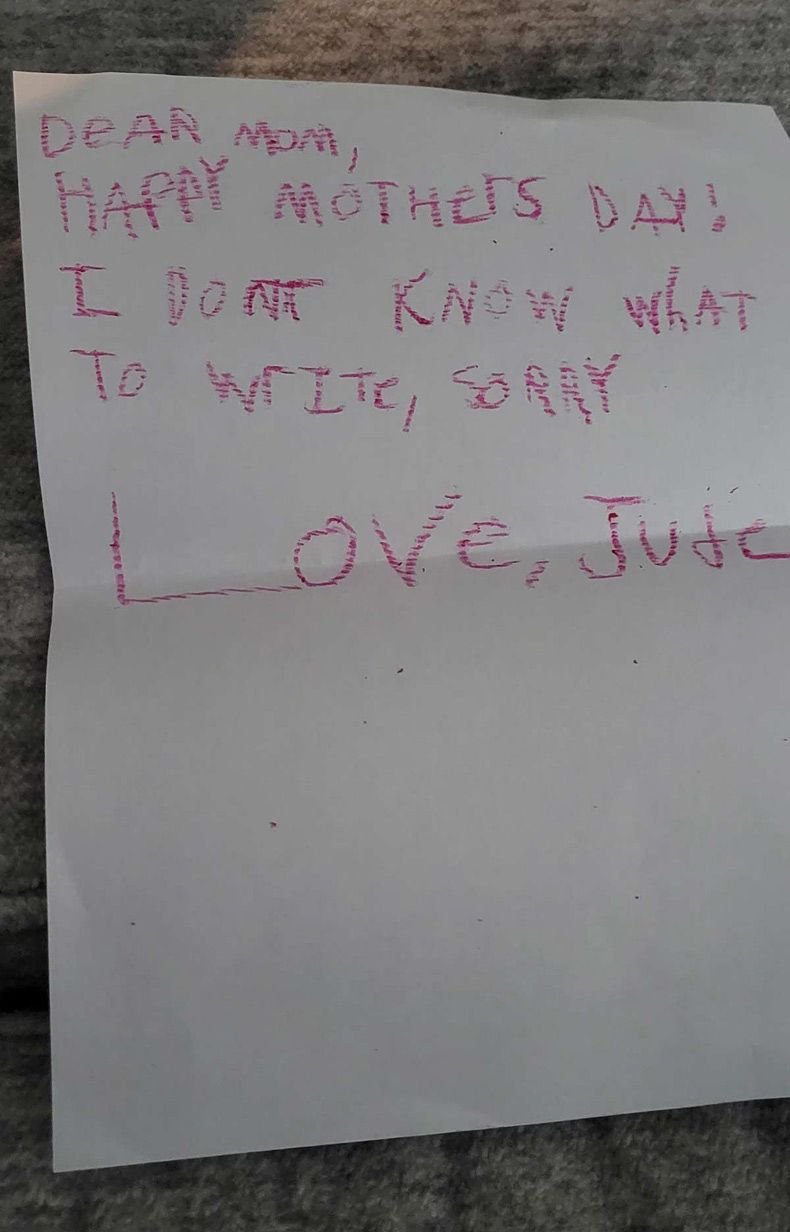 DeAR MOM,
HAPPY MOTHErS DAY!
I DONT KNOW WhAT
TO WrITe, SORRY
LOVe, Jude